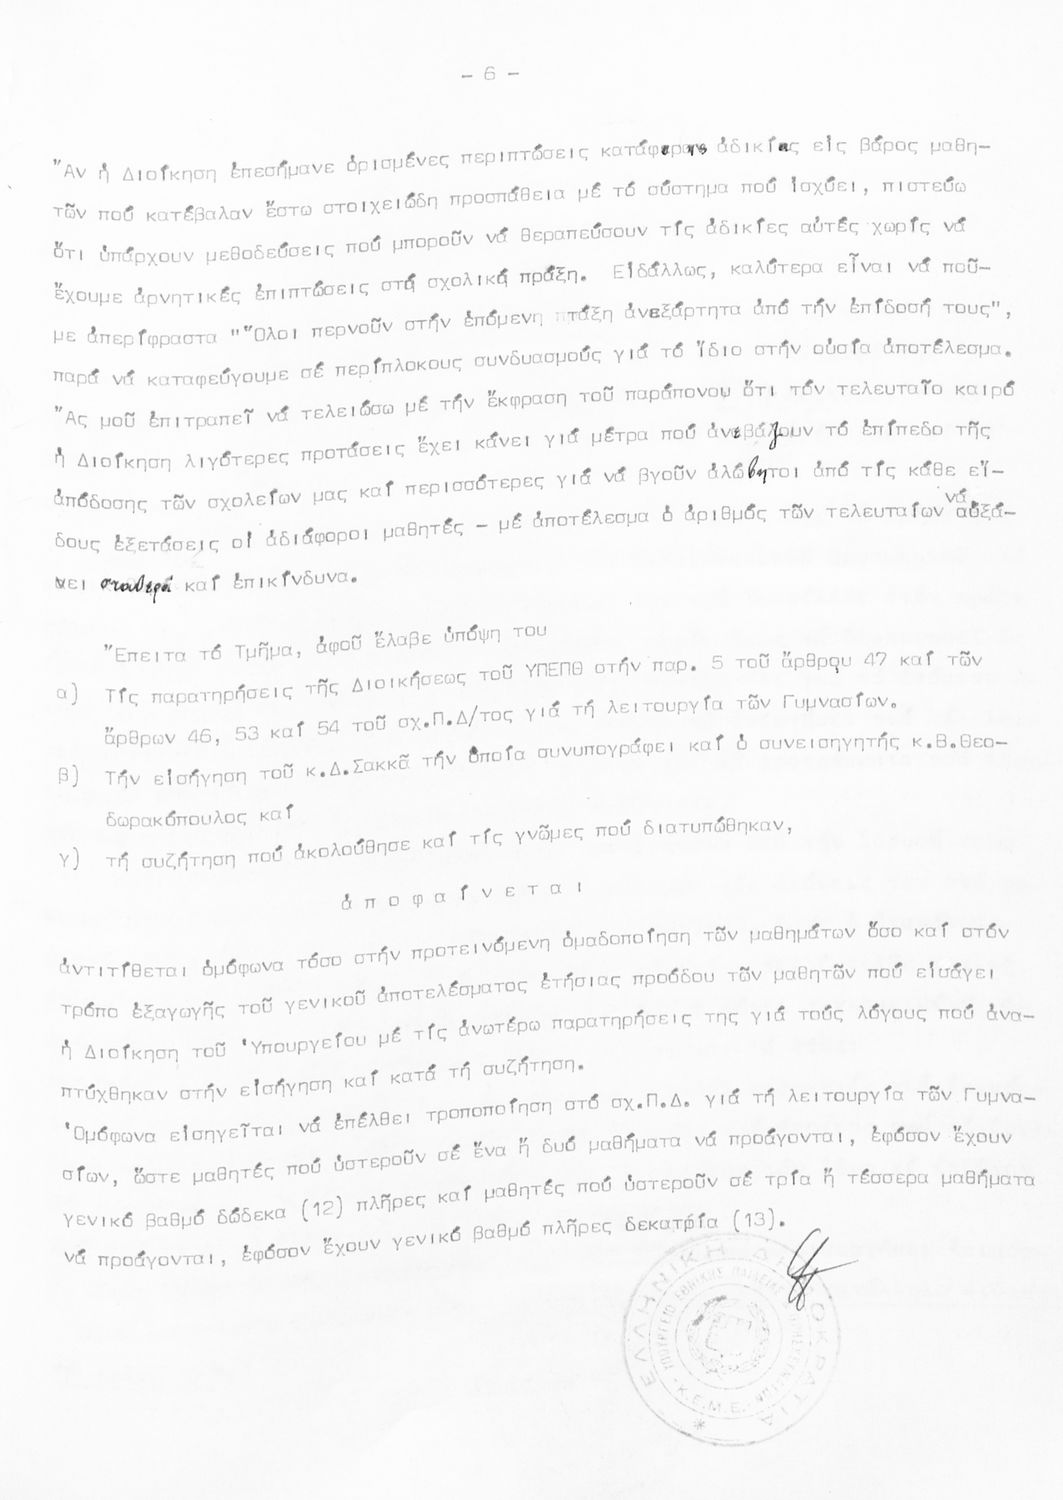 - 6 -
"Αν ἡ Διοίκηση ἐπεσήμανε ὁρισμένες περιπτώσεις κατάφωρης ἀδικίας εἰς βάρος μαθη-
τῶν πού κατέβαλαν ἔστω στοιχειώδη προσπάθεια μέ τό σύστημα πού ἰσχύει, πιστεύω
ὅτι ὑπάρχουν μεθοδεύσεις πού μποροῦν νά θεραπεύσουν τίς ἀδικίες αὐτές χωρίς νά
ἔχουμε ἀρνητικές ἐπιπτώσεις στή σχολική πράξη. Εἰδάλλως, καλύτερα εἶναι νά ποῦ-
με ἀπερίφραστα ""Ολοι περνοῦν στήν ἑπόμενη τάξη ἀνεξάρτητα ἀπό τήν ἐπίδοσή τους",
παρά νά καταφεύγουμε σέ περίπλοκους συνδυασμούς γιά τό ἴδιο στήν οὐσία ἀποτέλεσμα.
"Ας μοῦ ἐπιτραπεῖ νά τελειώσω μέ τήν ἔκφραση τοῦ παράπονου ὅτι τόν τελευταῖο καιρό
ἡ Διοίκηση λιγότερες προτάσεις ἔχει κάνει γιά μέτρα πού ἀνεβάζουν τό ἐπίπεδο τῆς
ἀπόδοσης τῶν σχολείων μας καί περισσότερες γιά νά βγοῦν ἀλώβητοι ἀπό τίς κάθε εἴ-
δους ἐξετάσεις οἱ ἀδιάφοροι μαθητές - μέ ἀποτέλεσμα ὁ ἀριθμός τῶν τελευταίων νά αὐξά-
νει σταθερά καί ἐπικίνδυνα.
"Επειτα τό Τμῆμα, ἀφοῦ ἔλαβε ὑπόψη του
α) Τίς παρατηρήσεις τῆς Διοικήσεως τοῦ ΥΠΕΠΘ στήν παρ. 5 τοῦ ἄρθρου 47 καί τῶν
ἄρθρων 46, 53 καί 54 τοῦ σχ.Π.Δ/τος γιά τή λειτουργία τῶν Γυμνασίων.
β) Τήν εἰσήγηση τοῦ κ.Δ.Σακκᾶ τήν ὁποία συνυπογράφει καί ὁ συνεισηγητής κ.Β.Θεο-
δωρακόπουλος καί
γ) τή συζήτηση πού ἀκολούθησε καί τίς γνῶμες πού διατυπώθηκαν,
ἀ π ο φ α ί ν ε τ α ι
ἀντιτίθεται ὁμόφωνα τόσο στήν προτεινόμενη ὁμαδοποίηση τῶν μαθημάτων ὅσο καί στόν
τρόπο ἐξαγωγῆς τοῦ γενικοῦ ἀποτελέσματος ἐτήσιας προόδου τῶν μαθητῶν πού εἰσάγει
ἡ Διοίκηση τοῦ 'Υπουργείου μέ τίς ἀνωτέρω παρατηρήσεις της γιά τούς λόγους πού ἀνα-
πτύχθηκαν στήν εἰσήγηση καί κατά τή συζήτηση.
'Ομόφωνα εἰσηγεῖται νά ἐπέλθει τροποποίηση στό σχ.Π.Δ. γιά τή λειτουργία τῶν Γυμνα-
σίων, ὥστε μαθητές πού ὑστεροῦν σέ ἕνα ἤ δυό μαθήματα νά προάγονται, ἐφόσον ἔχουν
γενικό βαθμό δώδεκα (12) πλῆρες καί μαθητές πού ὑστεροῦν σέ τρία ἤ τέσσερα μαθήματα
νά προάγονται, ἐφόσον ἔχουν γενικό βαθμό πλῆρες δεκατρία (13).
ΕΛΛΗΝΙΚΗ ΔΗΜΟΚΡΑΤΙΑ
ΥΠΟΥΡΓΕΙΟ ΕΘΝΙΚΗΣ ΠΑΙΔΕΙΑΣ
Κ.Ε.Μ.Ε.